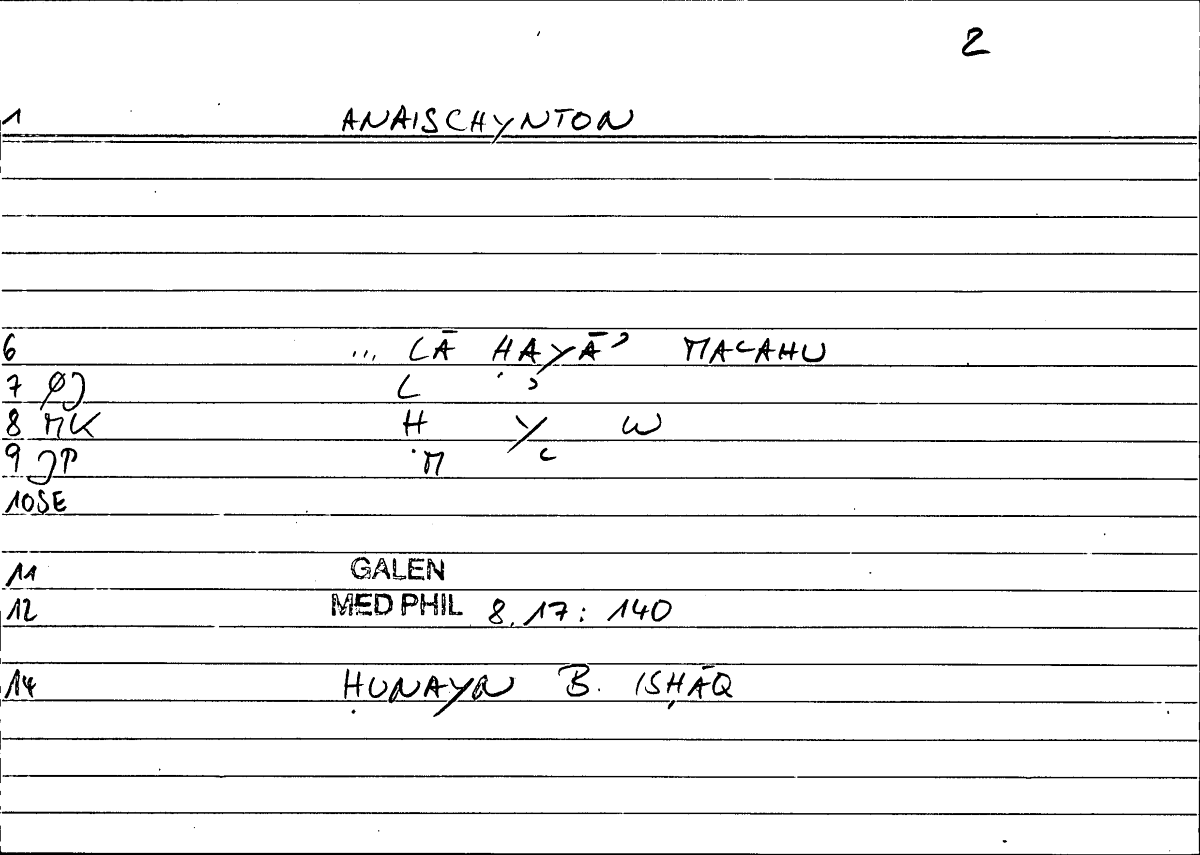 2
1 ANAISCHYNTON
6 ... LĀ ḤAYĀʾ MAʿAHU
7 ØJ L ʾ
8 MK Ḥ Y W
9 JP M ʿ
10 SE
11 GALEN
12 MED PHIL 8,17: 140
14 ḤUNAYN B. ISḤĀQ